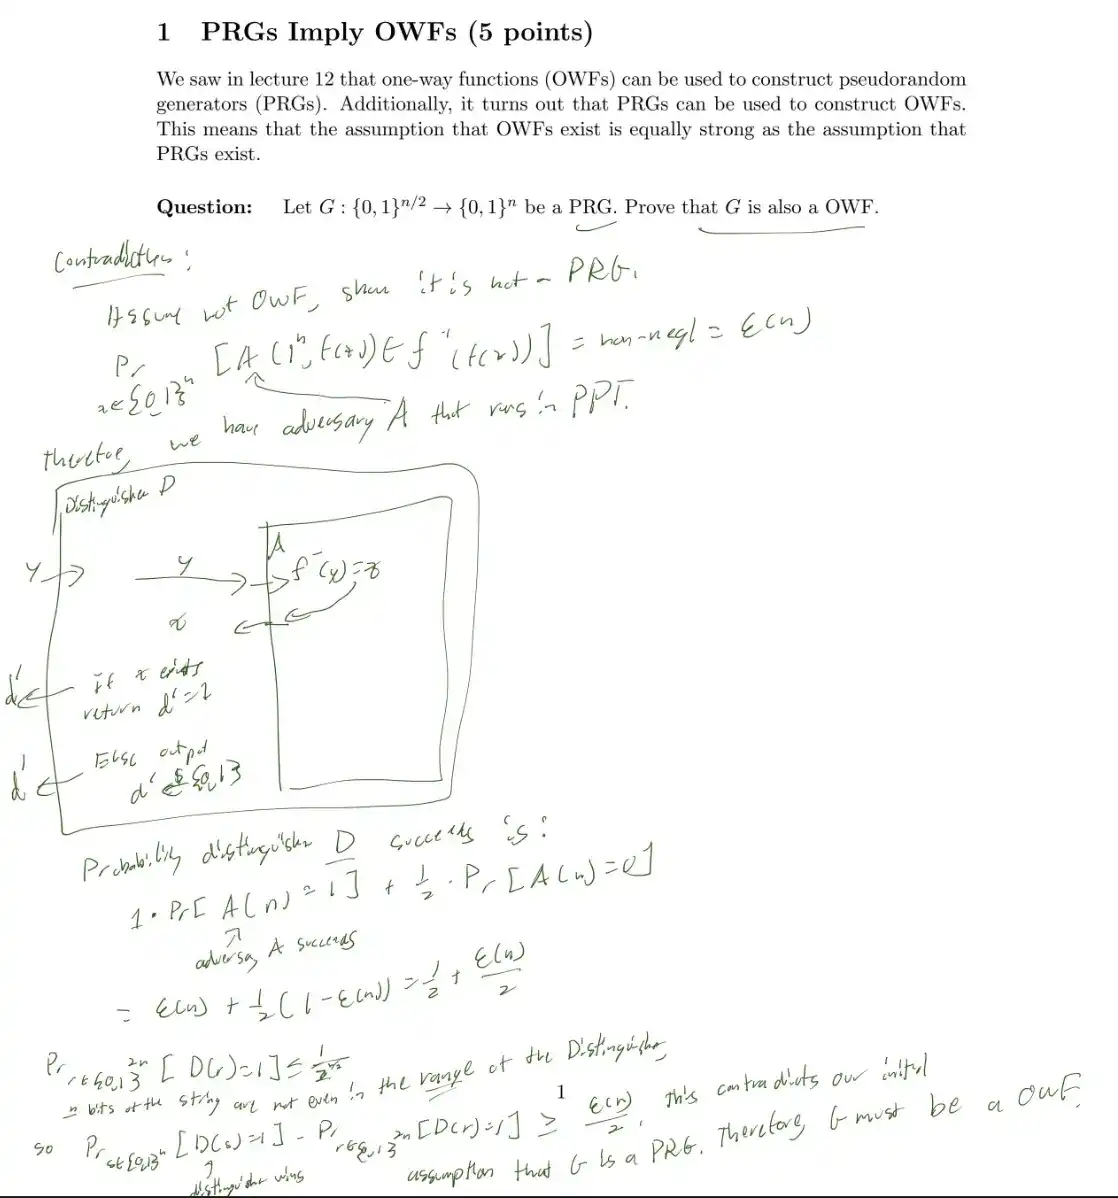 1 PRGs Imply OWFs (5 points)
We saw in lecture 12 that one-way functions (OWFs) can be used to construct pseudorandom
generators (PRGs). Additionally, it turns out that PRGs can be used to construct OWFs.
This means that the assumption that OWFs exist is equally strong as the assumption that
PRGs exist.
Question: Let G : {0, 1}^{n/2} → {0, 1}^n be a PRG. Prove that G is also a OWF.
Contradiction:
Assume not OWF, show it is not a PRG.
Pr_{x∈{0,1}^n} [A(1^n, f(x)) ∈ f^{-1}(f(x))] = non-negl = ε(n)
therefore, we have adversary A that runs in PPT.
Distinguisher D
A
y y f^{-1}(y)=x
x
d' if x exists
return d'=1
d' Else output
d' ←$ {0,1}
Probability distinguisher D succeeds is:
1 · Pr[A(n)=1] + 1/2 · Pr[A(n)=0]
adversary A succeeds
= ε(n) + 1/2(1-ε(n)) = 1/2 + ε(n)/2
Pr_{r∈{0,1}^{2n}} [D(r)=1] ≤
n bits of the string are not even in the range of the Distinguisher
1
so Pr_{s∈{0,1}^n} [D(s)=1] - Pr_{r∈{0,1}^{2n}} [D(r)=1] ≥ ε(n)/2. This contradicts our initial
distinguisher wins
assumption that G is a PRG. Therefore G must be a OWF.